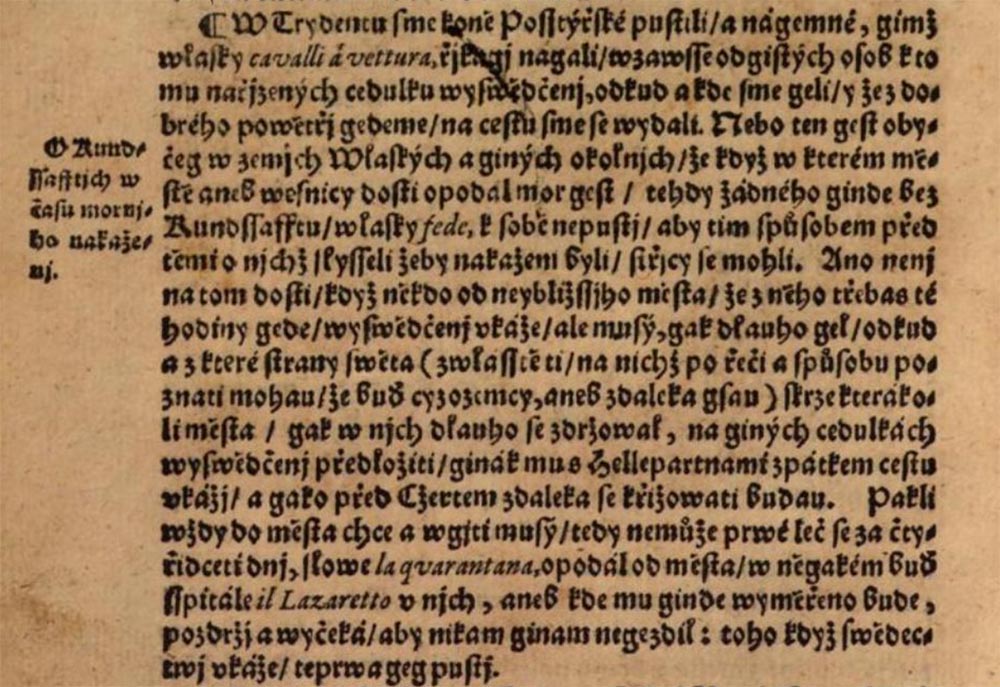 ¶ W Trydentu sme koně Posstýřské pustili/a nágemné, gimž
własky cavalli á vettura, řjkagj nagali/wzawsse od gistých osob k to
mu nařjzených cedulku wyswědčenj, odkud a kde sme geli/y že z do-
brého powětřj gedeme/na cestu sme se wydali. Nebo ten gest oby-
čeg w zemjch Właských a giných okolnjch/že když w kterém mě-
stě aneb wesnicy dosti opodal mor gest / tehdy žádného ginde bez
Kundssafftu/własky fede, k sobě nepustj/ aby tim spůsobem před
těmi o njchž slysseli žeby nakaženi byli/ siřjcy se mohli. Ano nenj
na tom dosti/když někdo od neybližssjho města/ že z něho třebas té
hodiny gede/wyswědčenj vkáže/ale musý, gak dłauho geł/odkud
a z které strany swěta (zwłasstě ti/na nichž po řeči a spůsobu po-
znati mohau/že buď cyzozemcy, aneb zdaleka gsau) skrze kteráko-
li města / gak w njch dłauho se zdržował, na giných cedulkách
wyswědčenj předložiti/ginák mu s Hellepartnami zpátkem cestu
vkážj/ a gako před Cžertem zdaleka se křižowati budau. Pakli
wždy do města chce a wgjti musý/tedy nemůže prwé leč se za čty-
řidceti dnj, słowe la qvarantana, opodál od města/w něgakém buď
sspitále il Lazaretto v njch, aneb kde mu ginde wyměřeno bude,
pozdržj a wyčeká/aby nikam ginam negezdił: toho když swědec-
twj vkáže/ teprwa geg pustj.
O Kund-
ssafftjch w
času mornj-
ho nakaže-
nj.